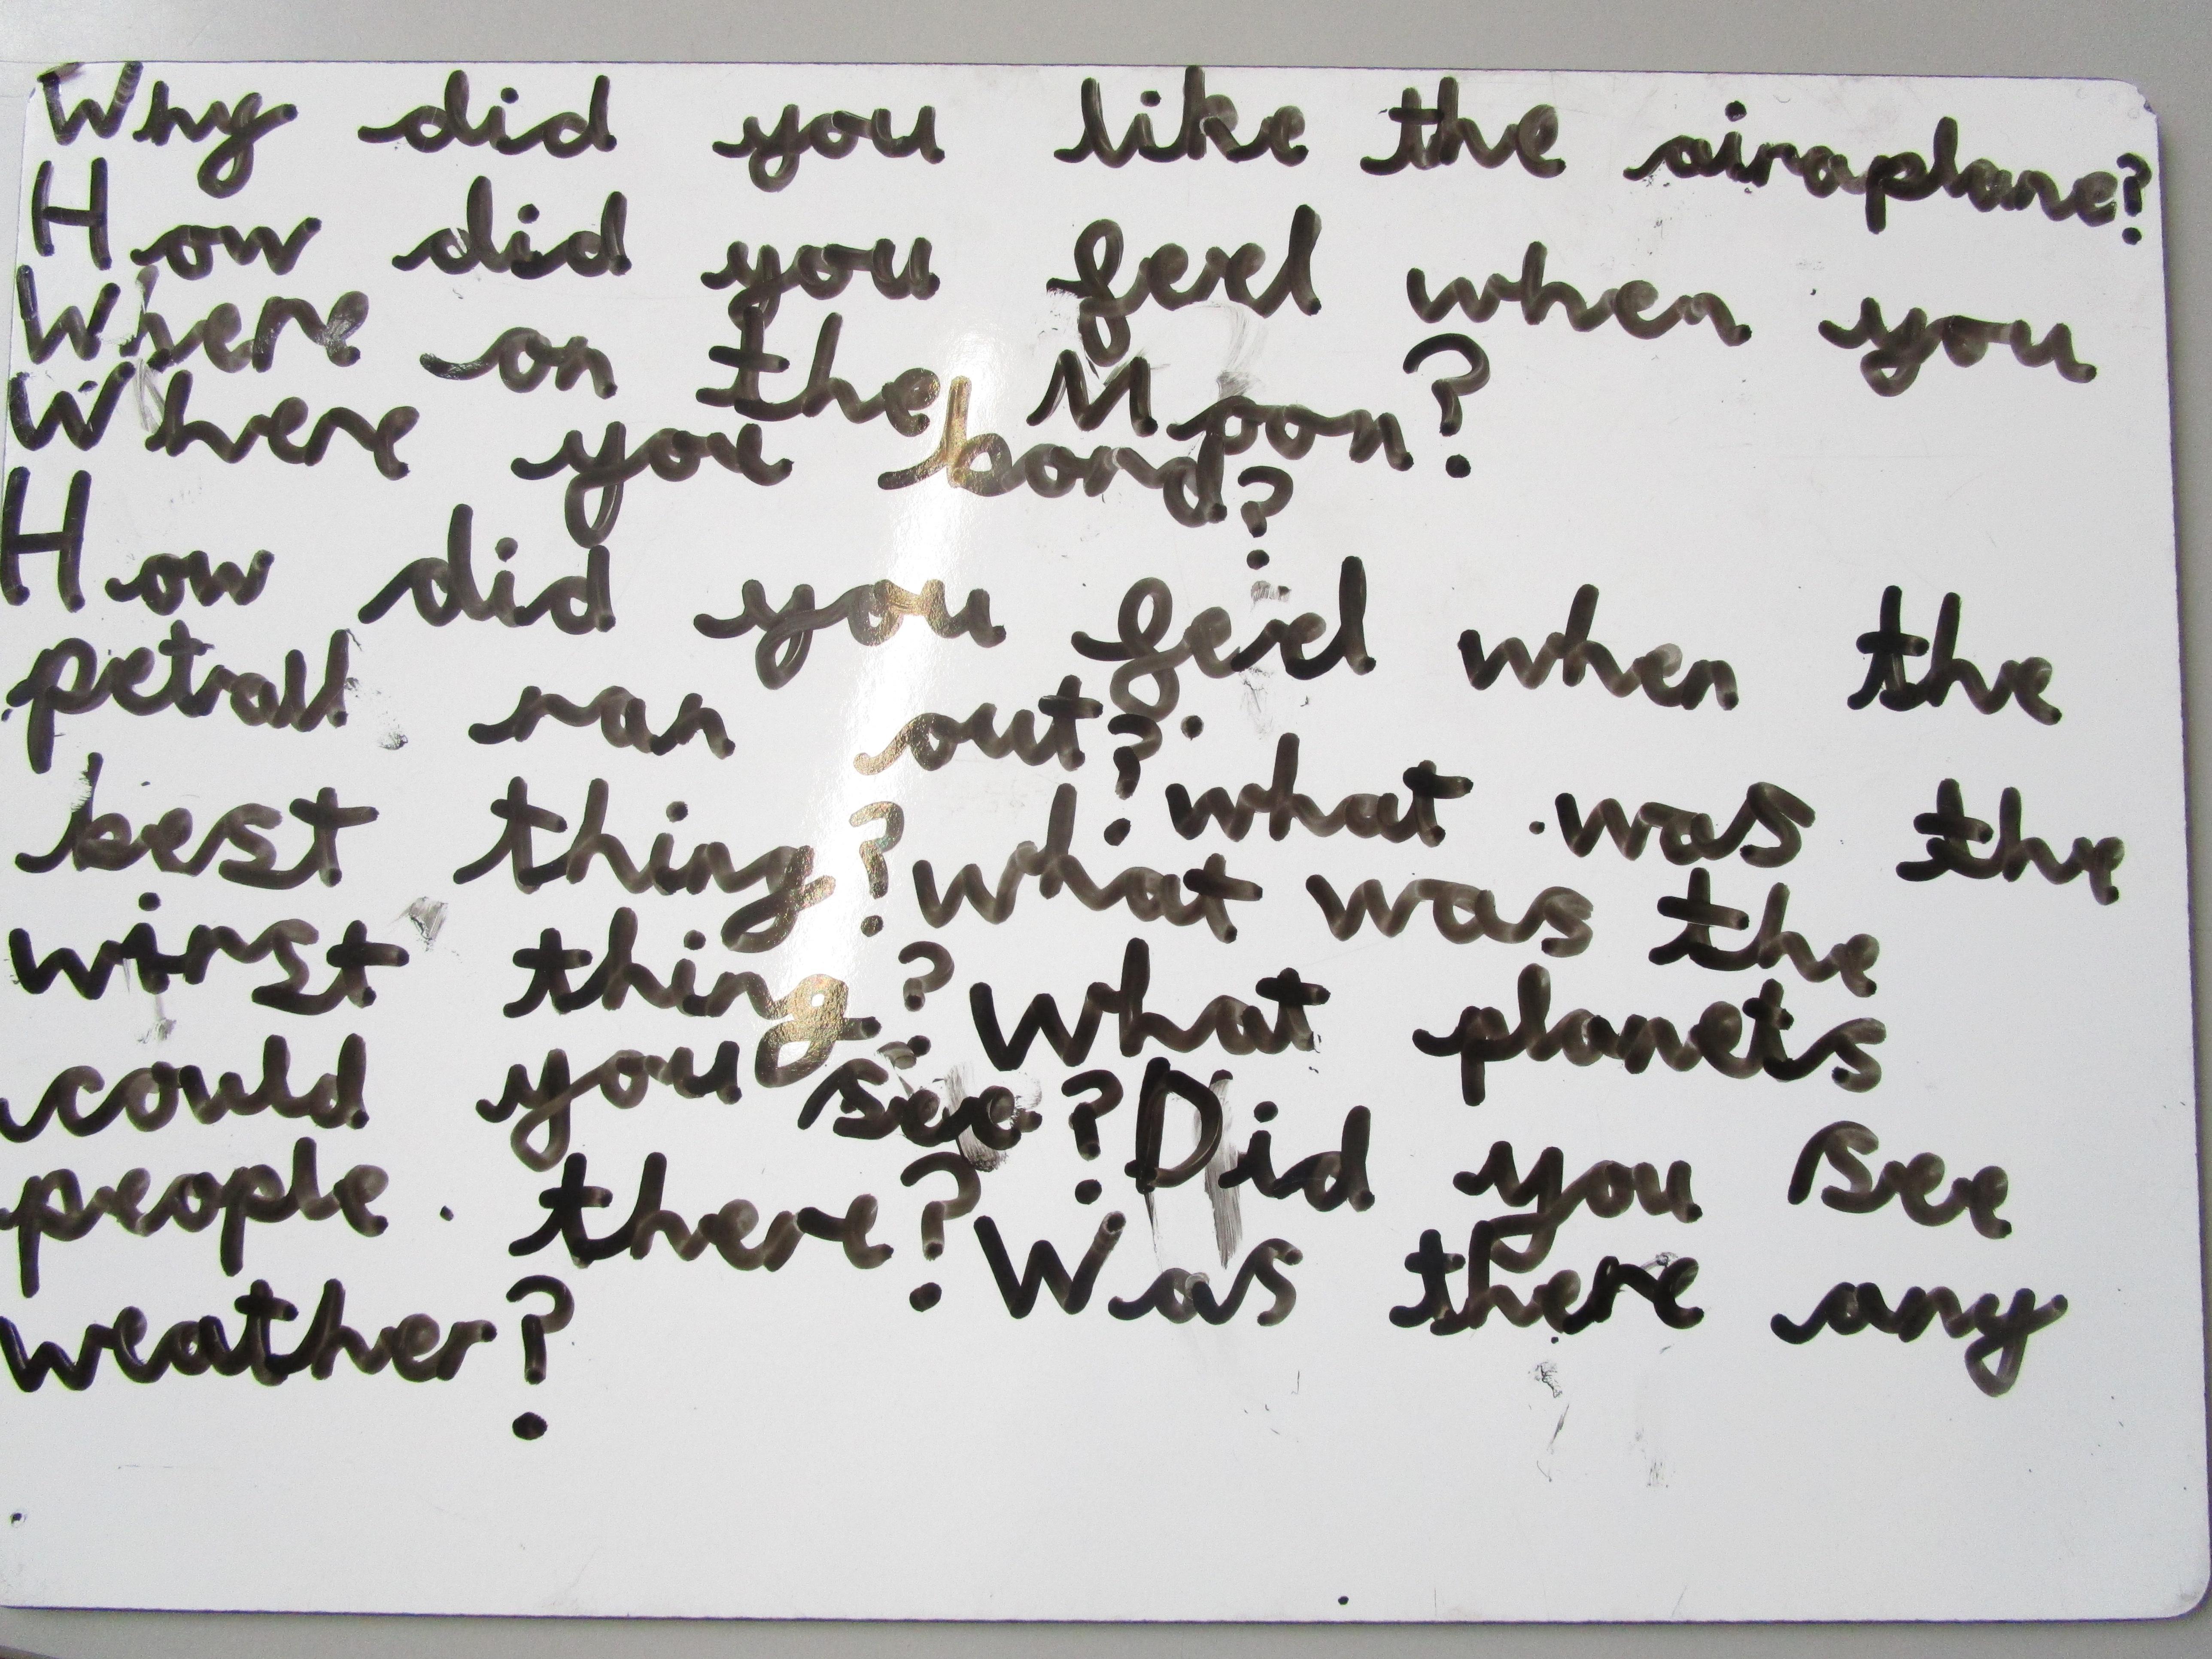 Why did you like the airaplane?
How did you feel when you
Where on the Moon?
Where you bord?
How did you feel when the
petrall ran out? what was the
best thing? what was the
wirst thing? What planets
could you see? Did you see
people there? Was there any
weather?